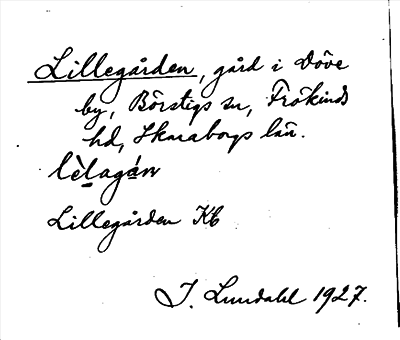 Lillegården, gård i Döve
by, Börstigs sn, Frökinds
hd, Skaraborgs län.
lèlagán
Lillegården Kb
I. Lundahl 1927.